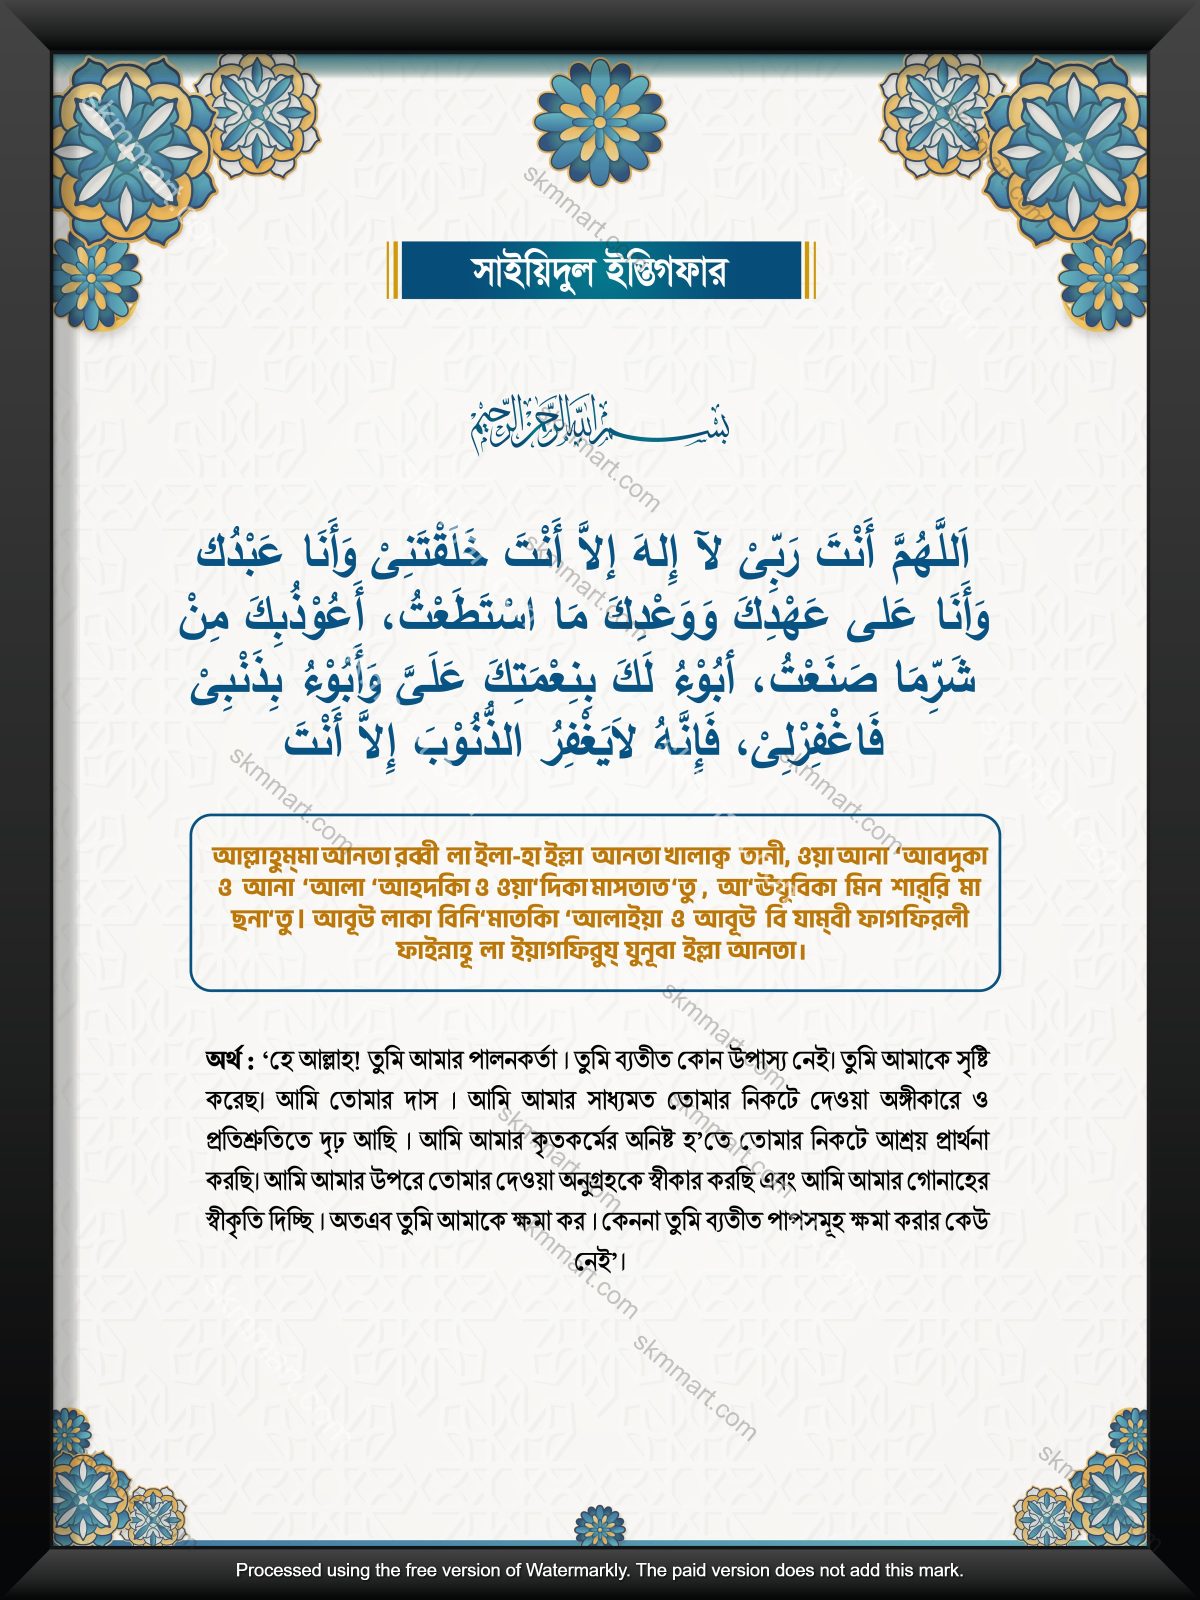 সাইয়িদুল ইস্তিগফার
بسم الله الرحمن الرحيم
اَللَّهُمَّ أَنْتَ رَبِّىْ لآ إِلهَ إلاَّ أَنْتَ خَلَقْتَنِىْ وَأَنَا عَبْدُكَ
وَأَنَا عَلى عَهْدِكَ وَوَعْدِكَ مَا اسْتَطَعْتُ، أَعُوْذُبِكَ مِنْ
شَرِّمَا صَنَعْتُ، أبُوْءُ لَكَ بِنِعْمَتِكَ عَلَىَّ وَأَبُوْءُ بِذَنْبِىْ
فَاغْفِرْلِىْ، فَإِنَّهُ لاَيَغْفِرُ الذُّنُوْبَ إِلاَّ أَنْتَ
আল্লাহুম্মা আনতা রব্বী লা ইলা-হা ইল্লা আনতা খালাক্ব তানী, ওয়া আনা ‘আবদুকা
ও আনা ‘আলা ‘আহদিকা ও ওয়া‘দিকা মাসতাত‘তু , আ‘ঊযূবিকা মিন শার্‌রি মা
ছনা‘তু। আবূউ লাকা বিনি‘মাতিকা ‘আলাইয়া ও আবূউ বি যাম্‌বী ফাগফিরলী
ফাইন্নাহূ লা ইয়াগফিরুয্ যুনূবা ইল্লা আনতা।
অর্থ : ‘হে আল্লাহ! তুমি আমার পালনকর্তা। তুমি ব্যতীত কোন উপাস্য নেই। তুমি আমাকে সৃষ্টি
করেছ। আমি তোমার দাস । আমি আমার সাধ্যমত তোমার নিকটে দেওয়া অঙ্গীকারে ও
প্রতিশ্রুতিতে দৃঢ় আছি। আমি আমার কৃতকর্মের অনিষ্ট হ’তে তোমার নিকটে আশ্রয় প্রার্থনা
করছি। আমি আমার উপরে তোমার দেওয়া অনুগ্রহকে স্বীকার করছি এবং আমি আমার গোনাহের
স্বীকৃতি দিচ্ছি। অতএব তুমি আমাকে ক্ষমা কর। কেননা তুমি ব্যতীত পাপসমূহ ক্ষমা করার কেউ
নেই’।
skmmart.com
Processed using the free version of Watermarkly. The paid version does not add this mark.